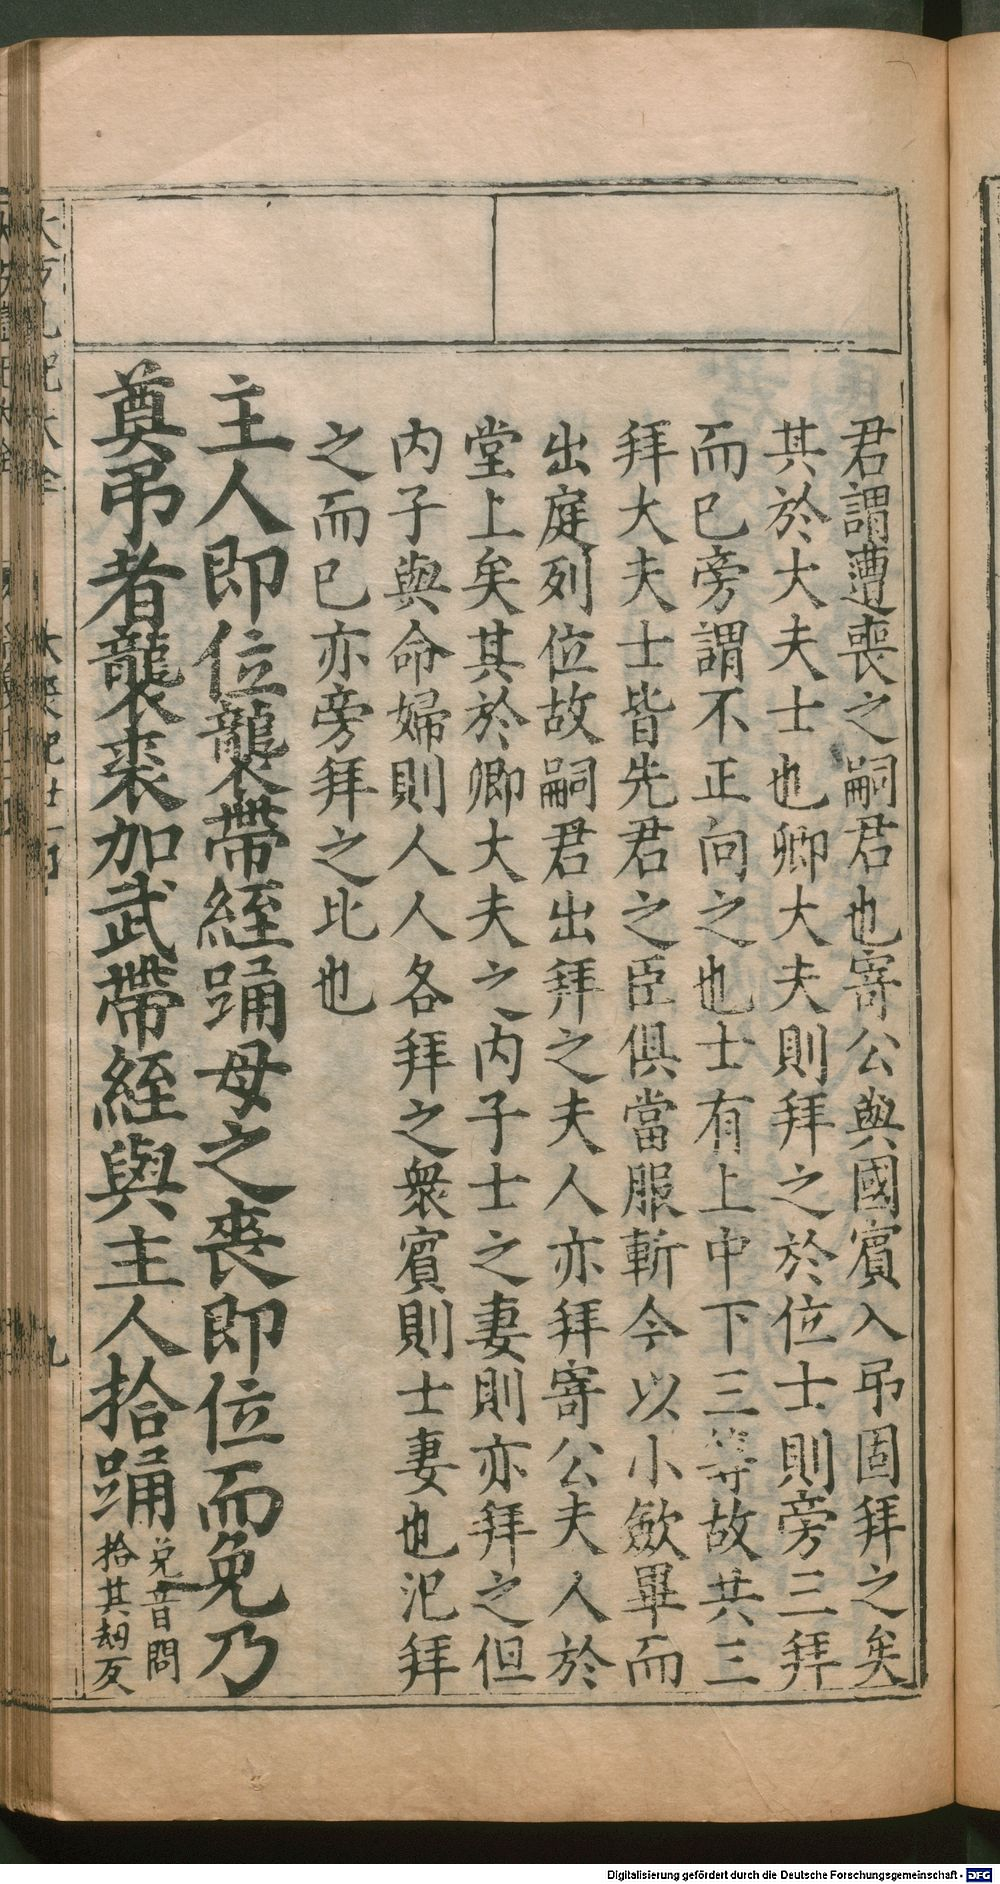 君謂遭喪之嗣君也寄公與國賓入弔固拜之矣
其於大夫士也卿大夫則拜之於位士則旁三拜
而已旁謂不正向之也士有上中下三等故共三
拜大夫士皆先君之臣俱當服斬今以小斂畢而
出庭列位故嗣君出拜之夫人亦拜寄公夫人於
堂上矣其於卿大夫之內子士之妻則亦拜之但
內子與命婦則人人各拜之衆賓則士妻也汜拜
之而已亦旁拜之比也
主人即位襲帶絰踊母之喪即位而免乃
奠弔者襲裘加武帶絰與主人拾踊
免音問
拾其劫反
Digitalisierung gefördert durch die Deutsche Forschungsgemeinschaft - DFG